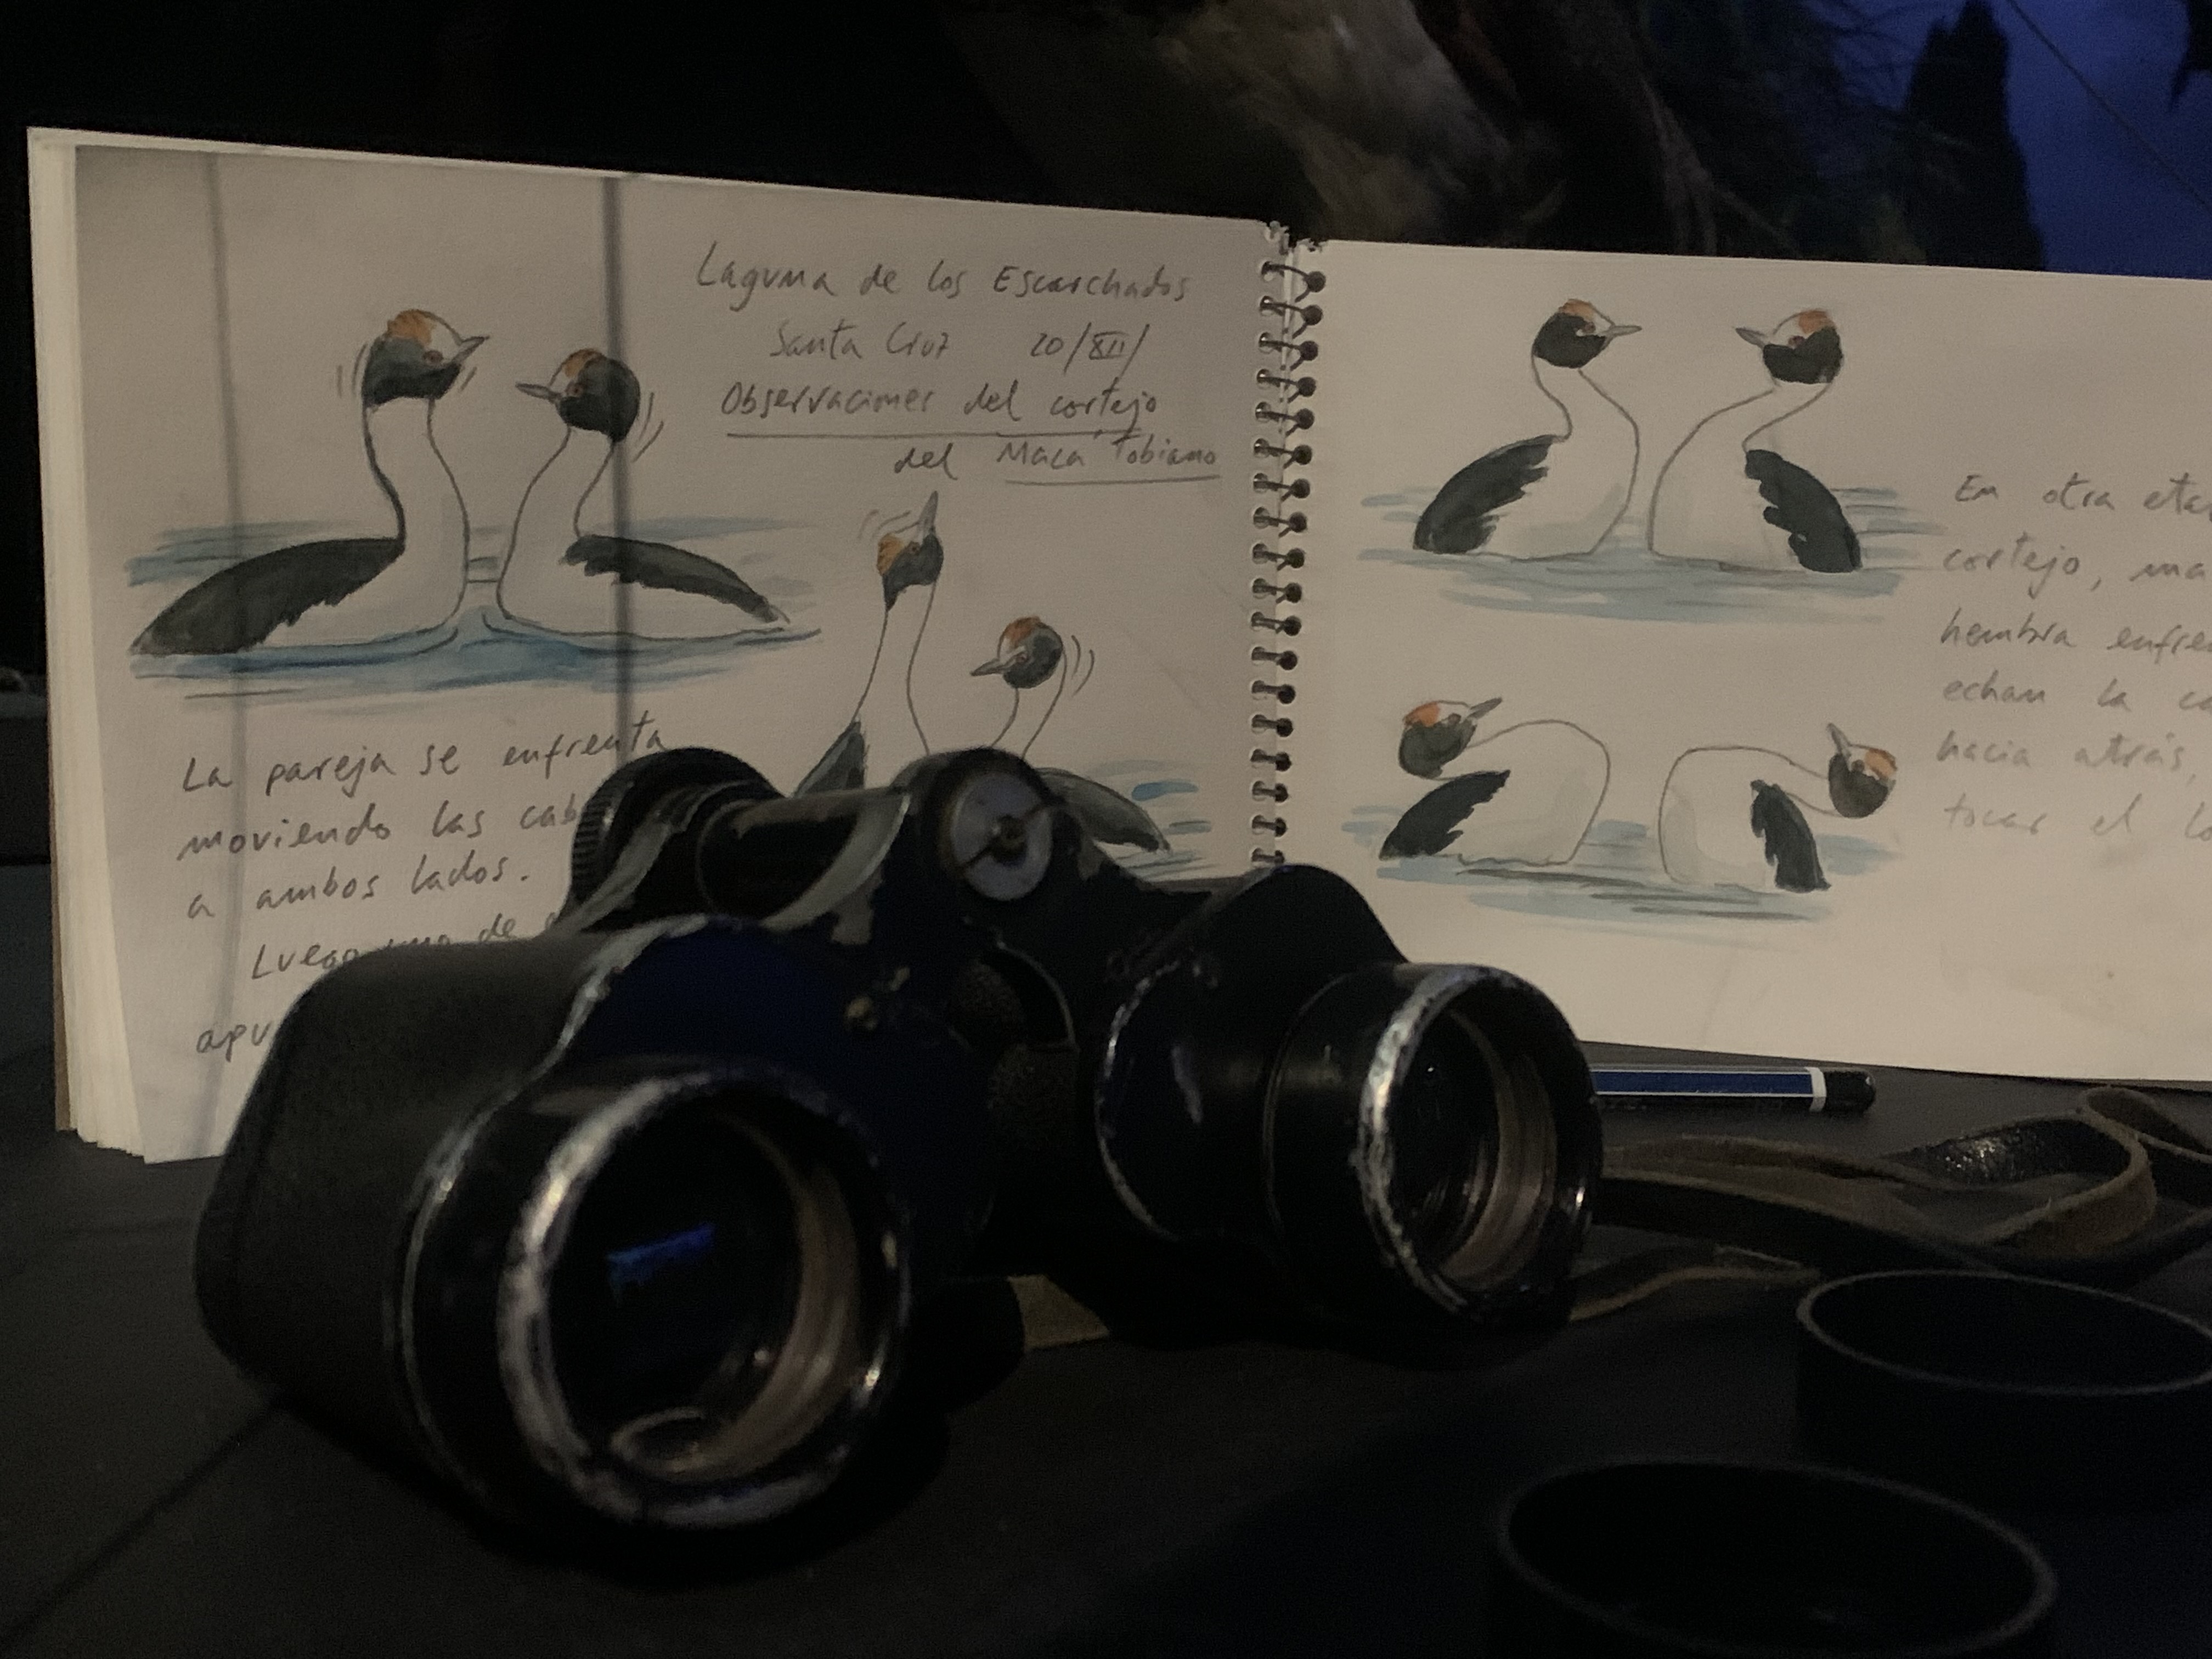 Laguna de los Escarchados
Santa Cruz 20/XII/
Observaciones del cortejo
del Macá Tobiano
La pareja se enfrenta
moviendo las cab
a ambos lados.
Luego una de
apu
En otra eta
cortejo, ma
hembra enfre
echan la ca
hacia atrás,
tocar el lo